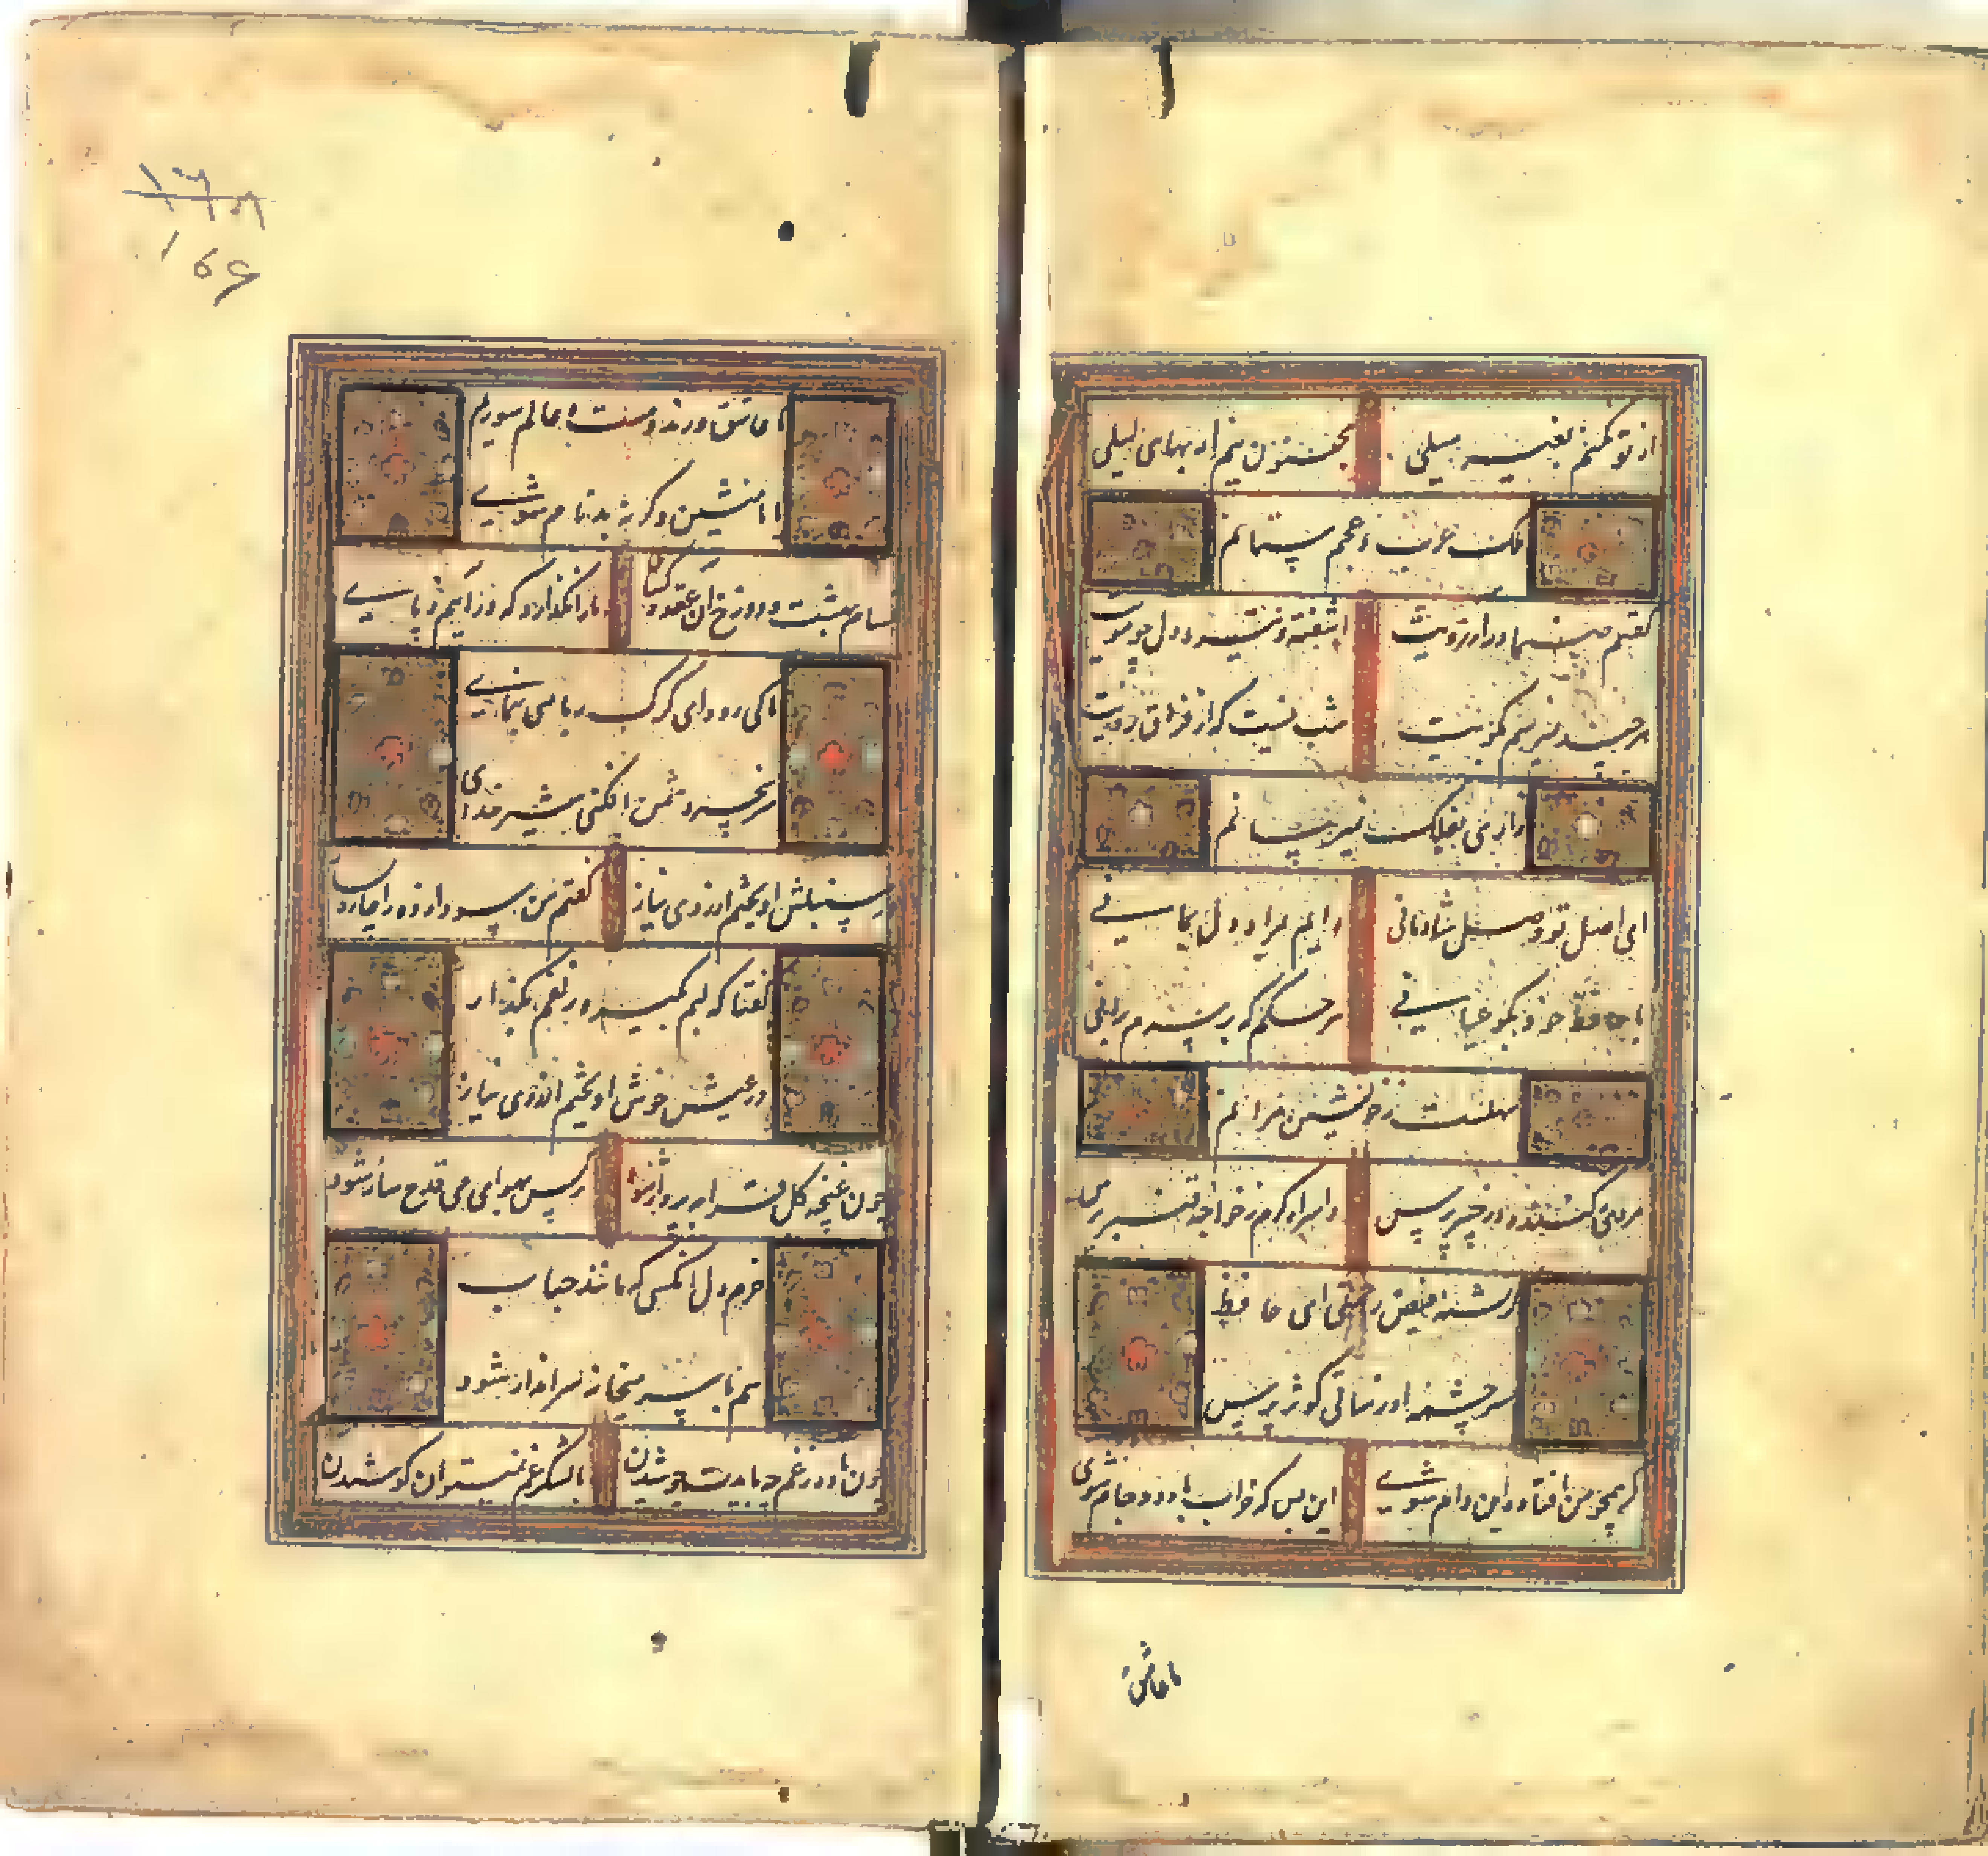 از تو نکنم بغیر میلی
مجنون نیم ار بهای لیلی
ملک عرب و عجم ستانم
گفتم صنما در آرزویت
آشفته و تشنه دل چو مویت
هرچند نمی‌رسم بکویت
شب نیست که از فراق رویت
زاری بفلک نمیرسانم
ای اصل تو وصل شادمانی
دایم بمراد دل بمانی
با حافظ خود بگو عیانی
هر حکم که بر سرم برانی
سهلست ز خویشتن مرانم
مردی ز کننده در خیبر پرس
و اسرار کرم ز خواجه قنبر پرس
گر تشنه فیض رحمتی ای حافظ
سرچشمه آن ز ساقی کوثر پرس
گر همچو من افتاده این دام شوی
ای بس که خراب باده و جام شوی
ما عاشق
ما عاشق و رند و مست و عالم سوزیم
با ما منشین و گرنه بدنام شوی
قسام بهشت و دوزخ آن عقده گشا
ما را نگذارد که در آییم ز پای
تا کی رود این گرگ ربایی بنمای
سر پنجه دشمن افکنی شیر خدای
در سنبلش آویختم از روی نیاز
گفتم من سودازده را چاره بساز
گفتا که لبم بگیر و زلفم بگذار
در عیش خوش آویختم از روی نیاز
چون غنچه گل قرابه پرداز شود
نرگس بهوای می قدح ساز شود
خرم دل آنکس که مانند حباب
هم با سر میخانه سرانداز شود
چون باده ز غم چه بایدت جوشیدن
با لشکر غم نمیتوان کوشیدن
۱۶۸
۱۶۶